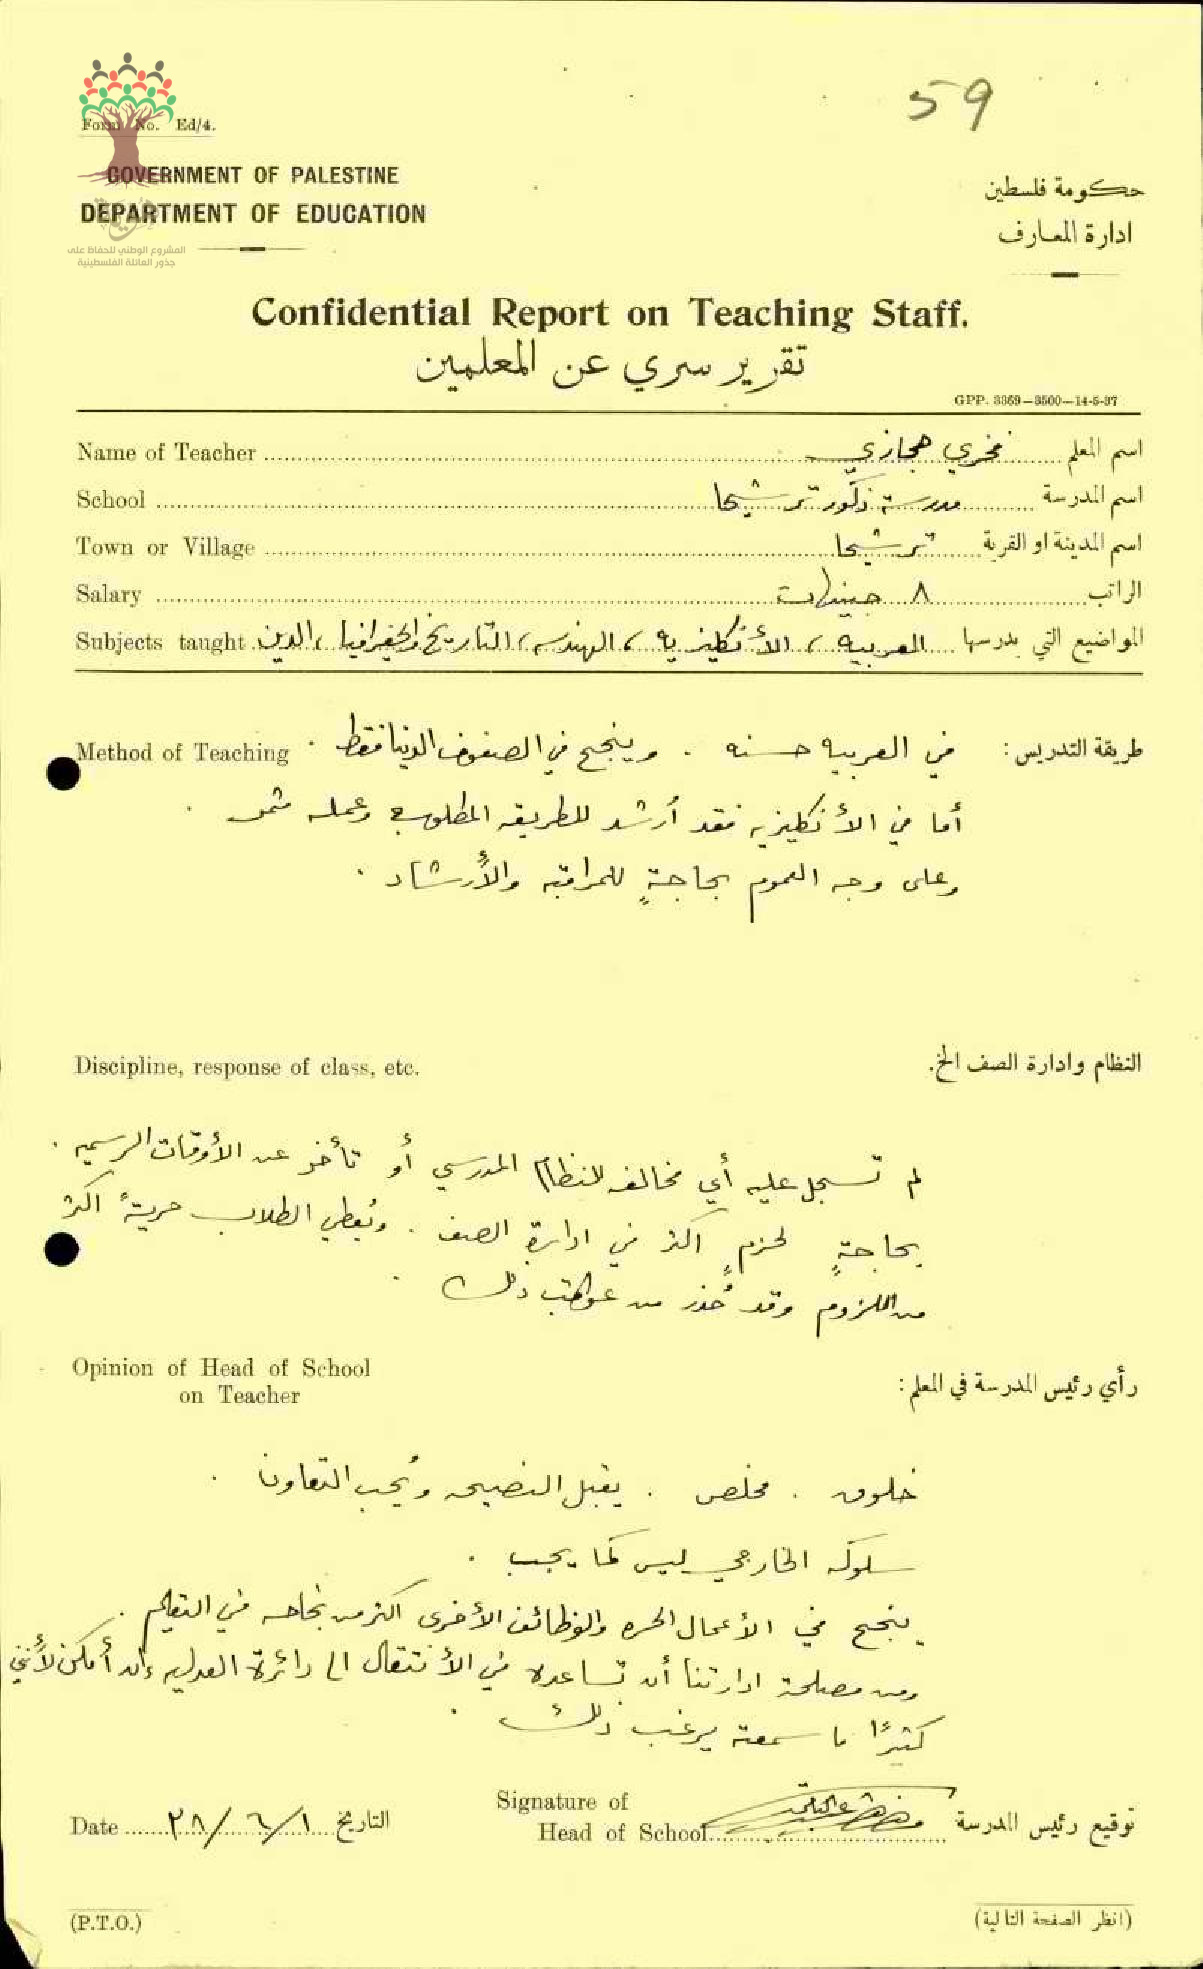 59
Form No. Ed/4.
GOVERNMENT OF PALESTINE
DEPARTMENT OF EDUCATION
حكومة فلسطين
ادارة المعارف
هوية
المشروع الوطني للحفاظ على
جذور العائلة الفلسطينية
Confidential Report on Teaching Staff.
تقرير سري عن المعلمين
GPP. 3369—3500—14-5-37
Name of Teacher فخري حجازي اسم المعلم
School مدرسة ذكور ترشيحا اسم المدرسة
Town or Village ترشيحا اسم المدينة او القرية
Salary ٨ جنيهات الراتب
Subjects taught العربيه ، الأنكليزيه ، الهندسه ، التاريخ والجغرافيا ، الدين المواضيع التي يدرسها
Method of Teaching طريقة التدريس: في العربيه حسنه . وينجح في الصفوف الدنيا فقط .
أما في الأنكليزيه فقد أرشد للطريقه المطلوبه وعمله مثمر .
وعلى وجه العموم بحاجةٍ للمراقبه والأرشاد .
Discipline, response of class, etc. النظام وادارة الصف الخ.
لم تسجل عليه أي مخالفه للنظام المدرسي أو تأخر عن الأوقات الرسميه .
بحاجةٍ لحزمٍ اكثر في ادارة الصف . ويُعطي الطلاب حريةً اكثر
من اللزوم وقد حُذر من عواقب ذلك .
Opinion of Head of School
on Teacher
رأي رئيس المدرسة في المعلم:
خلوق . مخلص . يقبل النصيحه ويُحب التعاون .
سلوكه الخارجي ليس كما يجب .
ينجح في الأعمال الحره والوظائف الأخرى اكثر من نجاحه في التعليم .
ومن مصلحة ادارتنا أن تساعده في الأنتقال الى دائرة العدليه إن أمكن لأنني
كثيرًا ما سمعته يرغب ذلك .
Signature of
Head of School توقيع رئيس المدرسة
Date ٣٨/٦/١ التاريخ
(P.T.O.)
(انظر الصفحة التالية)